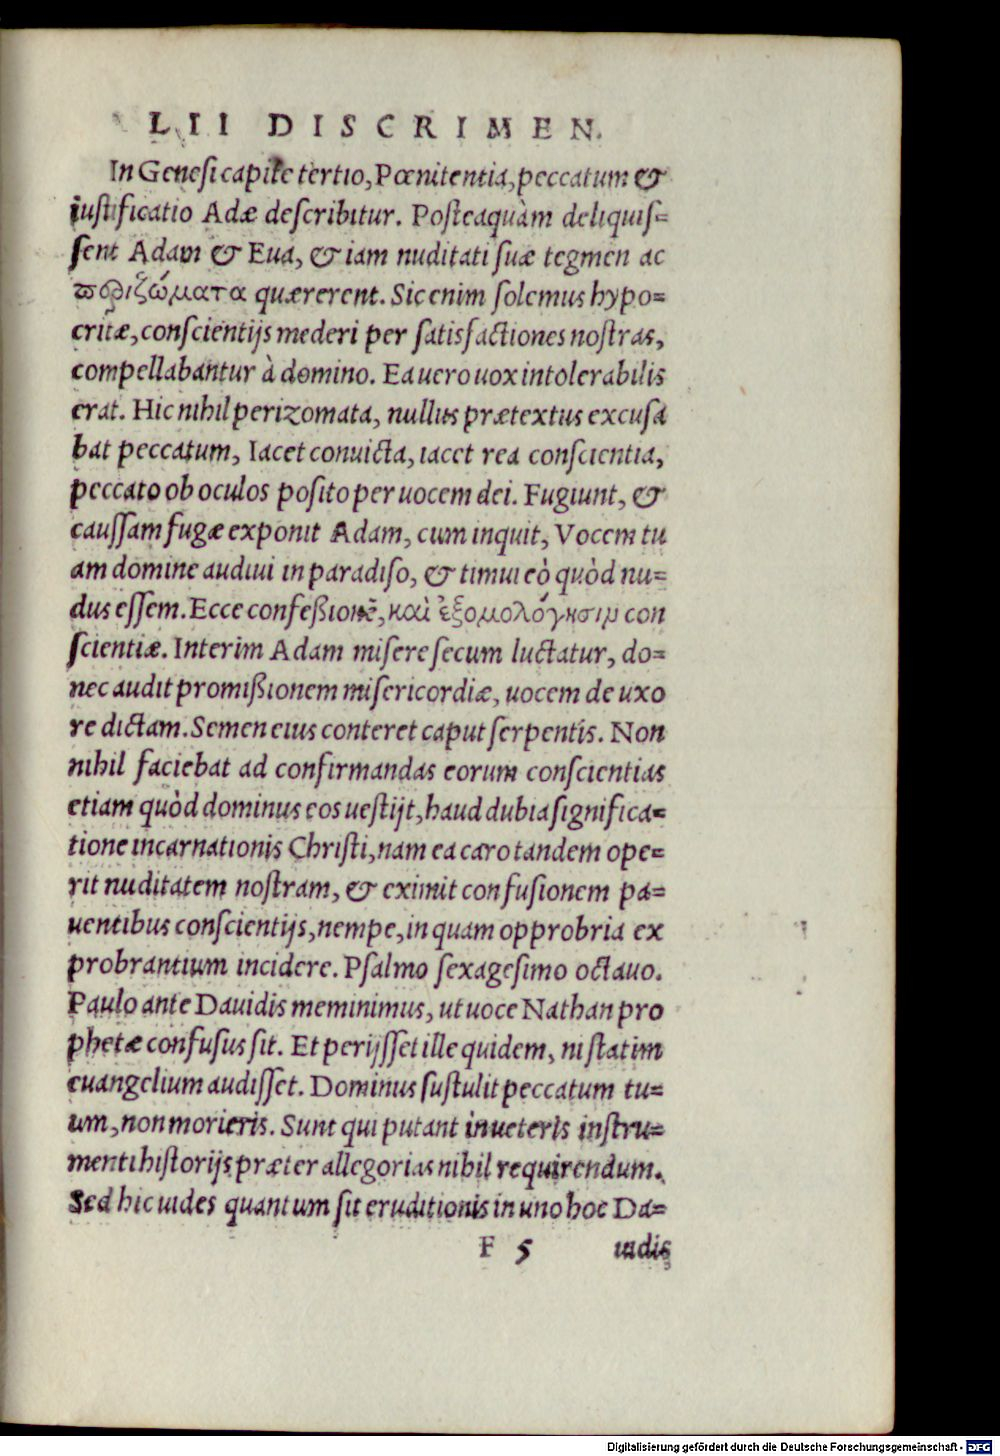 LII DISCRIMEN.
In Genesi capite tertio, Pœnitentia, peccatum &
iustificatio Adæ describitur. Posteaquàm deliquis=
sent Adam & Eua, & iam nuditati suæ tegmen ac
περιζώματα quærerent. Sic enim solemus hypo=
critæ, conscientijs mederi per satisfactiones nostras,
compellabantur à domino. Ea uero uox intolerabilis
erat. Hic nihil perizomata, nullus prætextus excusa
bat peccatum, Iacet conuicta, iacet rea conscientia,
peccato ob oculos posito per uocem dei. Fugiunt, &
caussam fugæ exponit Adam, cum inquit, Vocem tu
am domine audiui in paradiso, & timui eò quòd nu=
dus essem. Ecce confeßionē, καὶ ἐξομολόγησιμ con
scientiæ. Interim Adam misere secum luctatur, do=
nec audit promißionem misericordiæ, uocem de uxo
re dictam. Semen eius conteret caput serpentis. Non
nihil faciebat ad confirmandas eorum conscientias
etiam quòd dominus eos uestijt, haud dubia significa=
tione incarnationis Christi, nam ea caro tandem ope=
rit nuditatem nostram, & eximit confusionem pa=
uentibus conscientijs, nempe, in quam opprobria ex
probrantium incidere. Psalmo sexagesimo octauo.
Paulo ante Dauidis meminimus, ut uoce Nathan pro
phetæ confusus sit. Et perijsset ille quidem, ni statim
euangelium audisset. Dominus sustulit peccatum tu=
um, non morieris. Sunt qui putant in ueteris instru=
menti historijs præter allegorias nihil requirendum.
Sed hic uides quantum sit eruditionis in uno hoc Da=
F 5 uidis
Digitalisierung gefördert durch die Deutsche Forschungsgemeinschaft - DFG